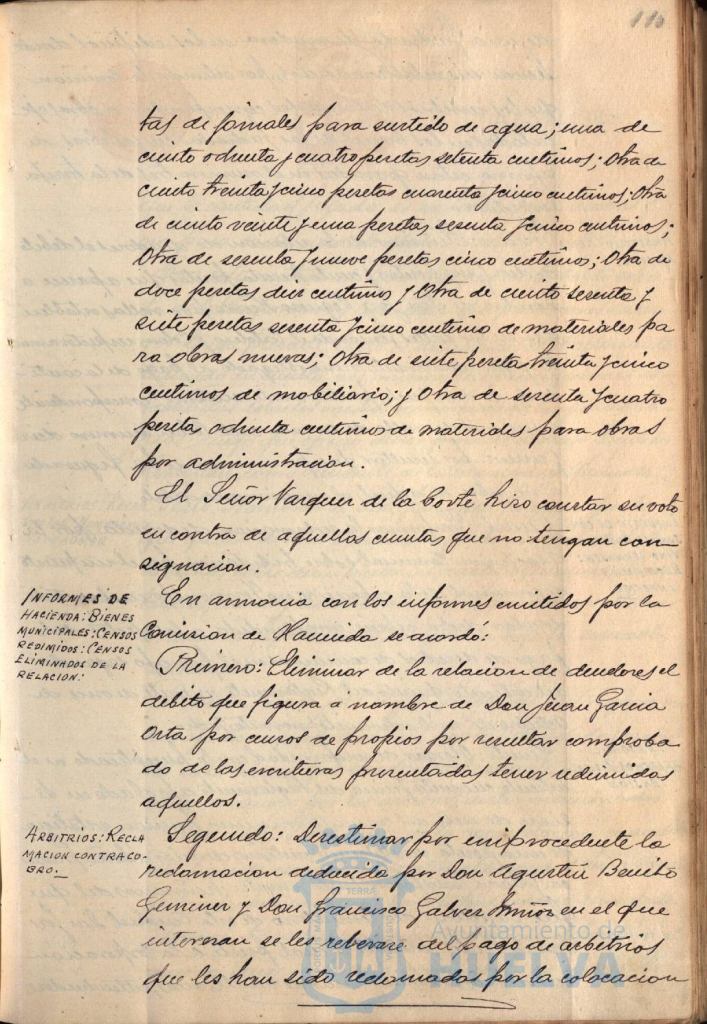 116
tas de jornales para surtido de agua; una de
ciento ochenta y cuatro pesetas setenta centimos; Otra de
ciento treinta y cinco pesetas cuarenta y cinco centimos; Otra
de ciento veinte y una pesetas sesenta y cinco centimos;
Otra de sesenta y nueve pesetas cinco centimos; Otra de
doce pesetas diez centimos y Otra de ciento sesenta y
siete pesetas sesenta y cinco centimo de materiales pa
ra obras nuevas; Otra de siete peseta treinta y cinco
centimos de mobiliario; y Otra de sesenta y cuatro
pesetas ochenta centimos de materiales para obras
por administracion.
El Señor Vazquez de la Corte hizo constar su voto
en contra de aquellas cuentas que no tengan con-
signacion.
INFORMES DE
HACIENDA: BIENES
MUNICIPALES: CENSOS
REDIMIDOS: CENSOS
ELIMINADOS DE LA
RELACION:
En armonia con los informes emitidos por la
Comision de Hacienda se acordó:
Primero: Eliminar de la relacion de deudores el
debito que figura á nombre de Don Juan Garcia
Orta por censos de propios por resultar comproba
do de las escrituras presentadas tener redimidos
aquellos.
ARBITRIOS: RECLA
MACION CONTRA CO-
BRO._
Segundo: Desestimar por improcedente la
reclamacion deducida por Don Agustin Benito
Geminer y Don Francisco Galvez Muñoz en el que
interesan se les relevare del pago de arbitrios
que les han sido reclamados por la colocacion
Ayuntamiento de
HUELVA